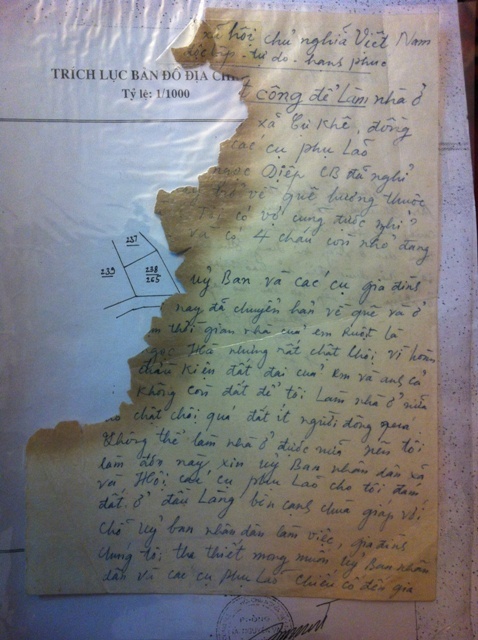 xã hội chủ nghĩa Việt Nam
lập - tự do - hạnh phúc
TRÍCH LỤC BẢN ĐỒ ĐỊA CHÍ
Tỷ lệ: 1/1000
công đề Làm nhà ở
xã Cự Khê, đồng
các cụ phụ Lão
ngọc Diệp CB đã nghỉ
về quê hương thuộc
có vợ cũng được nghỉ
và có 4 cháu còn nhỏ đang
237
239
238
265
uỷ Ban và các cụ gia đình
nay đã chuyển hẳn về quê và ở
thời gian nhà của em Ruột là
Hà nhưng rất chật chội, vì hoàn
Kiện đất đai của em và anh cả
Không còn đất để tôi Làm nhà ở nữa
chật chội quá đất ít người đông qua
Không thể làm nhà ở được nữa nên tôi
làm đơn này, xin uỷ Ban nhân dân xã
với Hội các cụ phụ Lão cho tôi đám
đất ở đầu Làng bên cạnh chùa giáp với
chỗ uỷ ban nhân dân làm việc, gia đình
chúng tôi tha thiết mong muốn uỷ Ban nhân
dân và các cụ phụ Lão chiếu cố đến gia